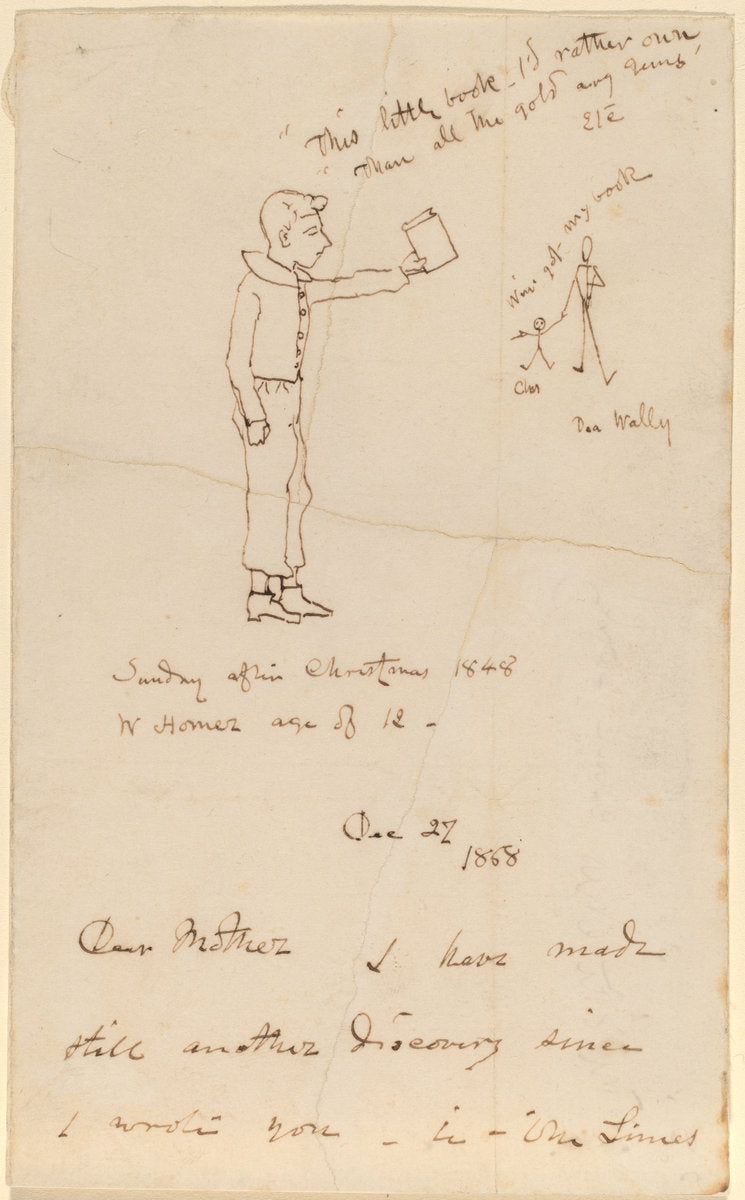 " This little book - I'd rather own
" than all the gold any gems'
Etc
got my book
Chas
Dea Wally
Sunday after Christmas 1848
W Homer age of 12 -
Dec 27
1868
Dear Mother I have made
still another discovery since
I wrote you - in - the Times